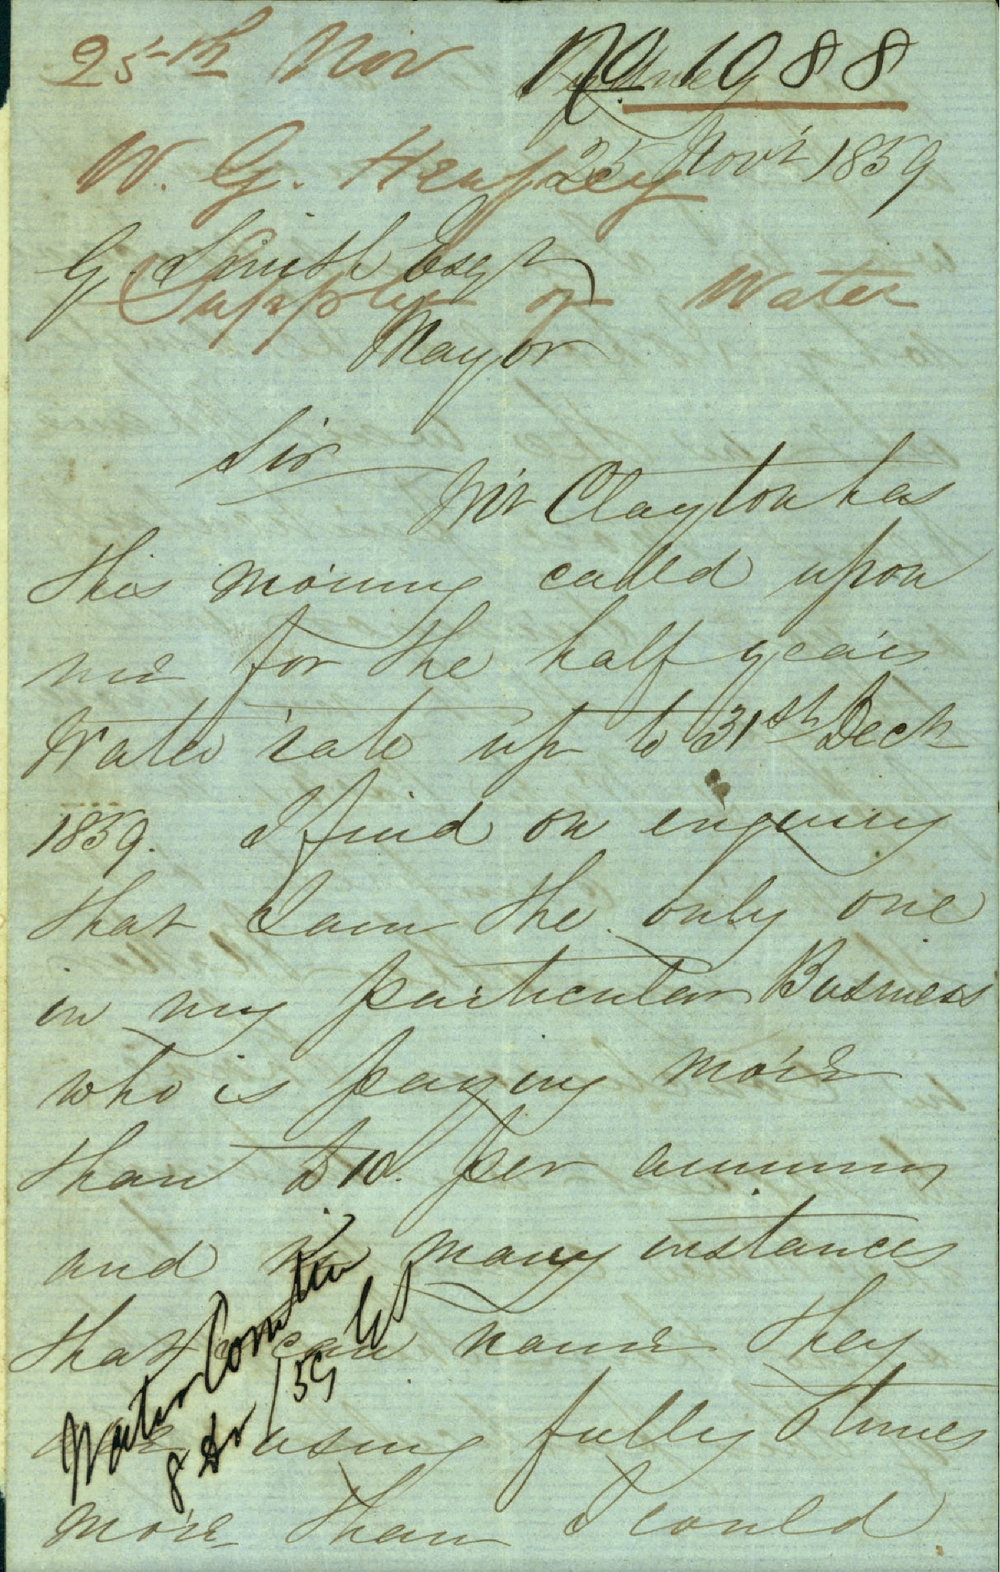 25th Nov
No 1088
Sydney
25 Novr 1859
W. G. Henfrey
G. Smith Esqr
Supply of Water
Mayor
Sir
Mr Clayton has
this morning called upon
me for the half years
Water rate up to 31st Decr
1859. I find on enquiry
that I am the only one
in my particular Business
who is paying more
than £10. per annum
and in many instances
that I can name they
are using fully times
more than I could
Water Comtee
8 /59